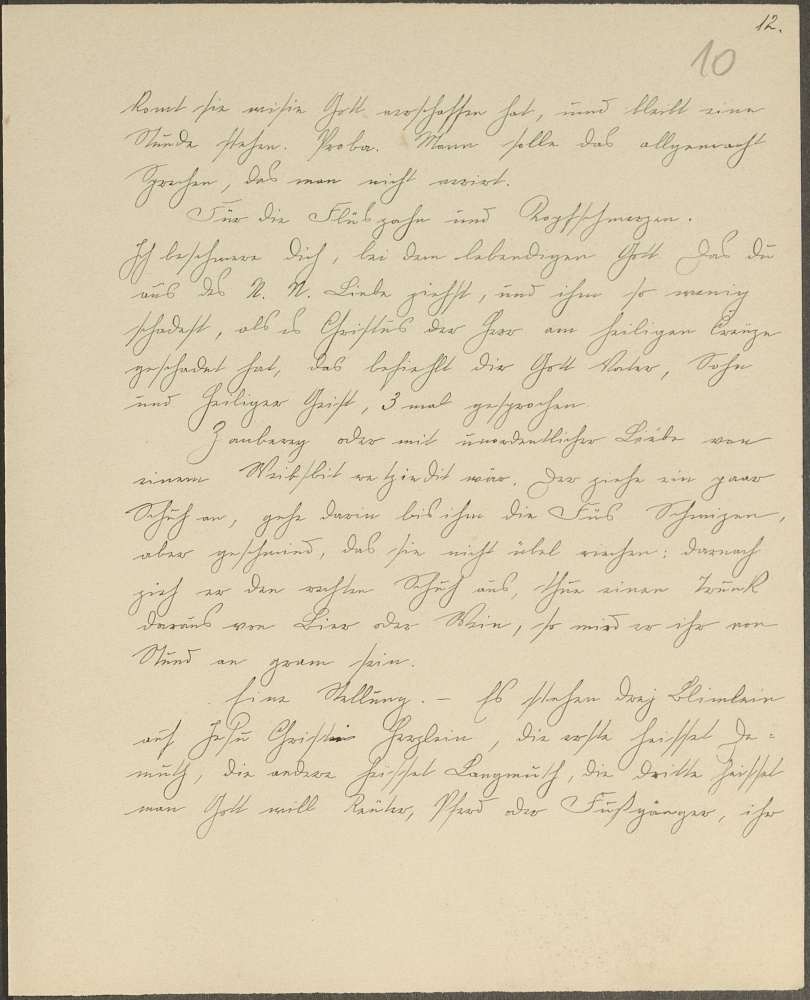 12.
10
komt sie wi sie Gott erschaffen hat, und bleibt eine
Stunde stehen. Proba. Mann solle das allgemach
Sprechen, das man nicht wirt.
Für die Flüs zahn und Kopfschmerzen.
Ich beschwere Dich, bei dem lebendigen Gott Das Du
aus des N. N. Liebe ziehst, und ihm so wenig
schadest, als es Christus der Herr am heiligen Creuze
geschadet hat, das befiehlt dir Gott Vater, Sohn
und Heiliger Geist, 3 mal gesprochen
Zauberey oder mit unordentlicher Liebe von
einem Weibsbit wär. Der ziehe ein paar
Schuh an, gehe darin bis ihm die Füs Schwizen,
aber geschwind, das sie nicht übel riechen: darnach
zieh er den rechten Schuh aus, thue einen Trunk
daraus von Bier oder Wein, so wird er ihr von
Stund an gram sein.
Eine Stellung. – Es stehen drej Blimlein
auf Jesu Christi Herzlein, die erste heisset De=
muth, die andere heisset Langmuth, die dritte heisset
man Gott will Reüter, Pferd oder Fußgänger, ihr